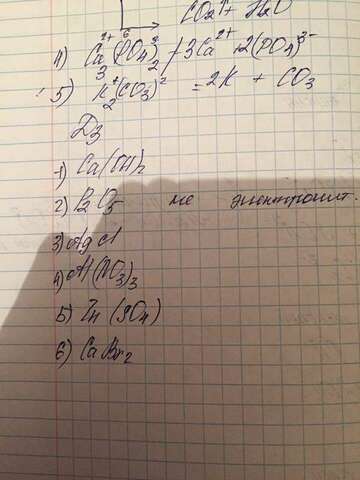 CO2↑ + H2O
4) Ca3^2+(PO4)2^3- / 3Ca^2+ + 2(PO4)^3-
5) K2^+(CO3)^2 = 2K + CO3
Дз
1) Ca(OH)2
2) P2O5 не электролит.
3) AgCl
4) Al(NO3)3
5) Zn(SO4)
6) CaBr2